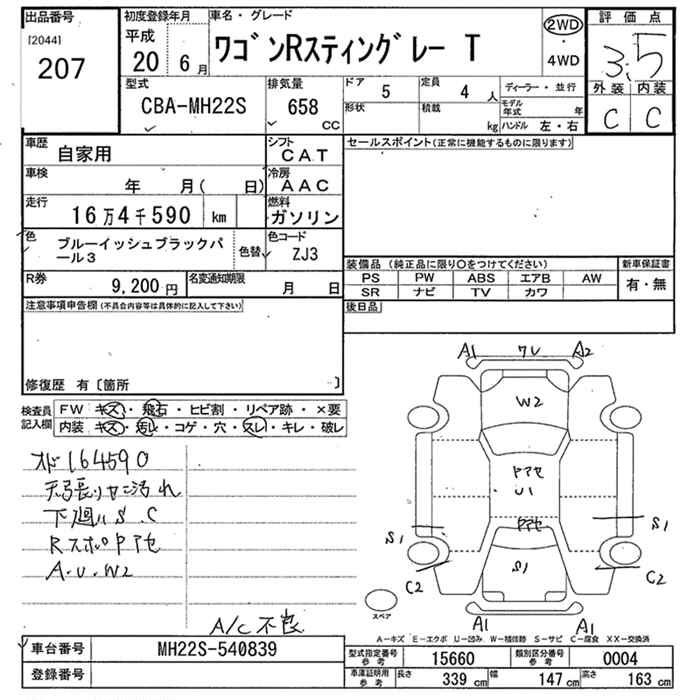 出品番号
[2044]
207
初度登録年月
平成
20 6月
車名・グレード
ワゴンRスティングレー T
2WD
・
4WD
評価点
3.5
外装 内装
C C
型式
CBA-MH22S
排気量
658
CC
ドア
5
定員
4 人
形状
積載
kg
ディーラー・並行
モデル年式 年
ハンドル 左・右
車歴
自家用
シフト
CAT
車検
年 月( 日)
冷房
AAC
走行
16万4千590 km
燃料
ガソリン
色
ブルーイッシュブラックパ
ール3
色替
色コード
ZJ3
R券
9,200円
名変通知期限
月 日
注意事項申告欄(不具合内容等は具体的に記入して下さい)
修復歴 有〔箇所 〕
セールスポイント(正常に機能するものに限ります)
装備品(純正品に限り○をつけてください)
PS PW ABS エアB AW
SR ナビ TV カワ
新車保証書
有・無
後日品
検査員
記入欄
FW キズ・飛石・ヒビ割・リペア跡・×要
内装 キズ・汚レ・コゲ・穴・スレ・キレ・破レ
オド164590
天張りセニ汚れ
下廻りS.C
RスポロPアセ
A.U.W2
A/C不良
A1 ワレ A2
W2
Pアセ
U1
Pアセ
S1
S1
S1
C2
C2
A1
A1
スペア
A-キズ E-エクボ U-凹み W-補修跡 S-サビ C-腐食 XX-交換済
車台番号
MH22S-540839
登録番号
型式指定番号
参考
15660
類別区分番号
参考
0004
車庫証明用
参考
長さ
339 cm
幅
147 cm
高さ
163 cm